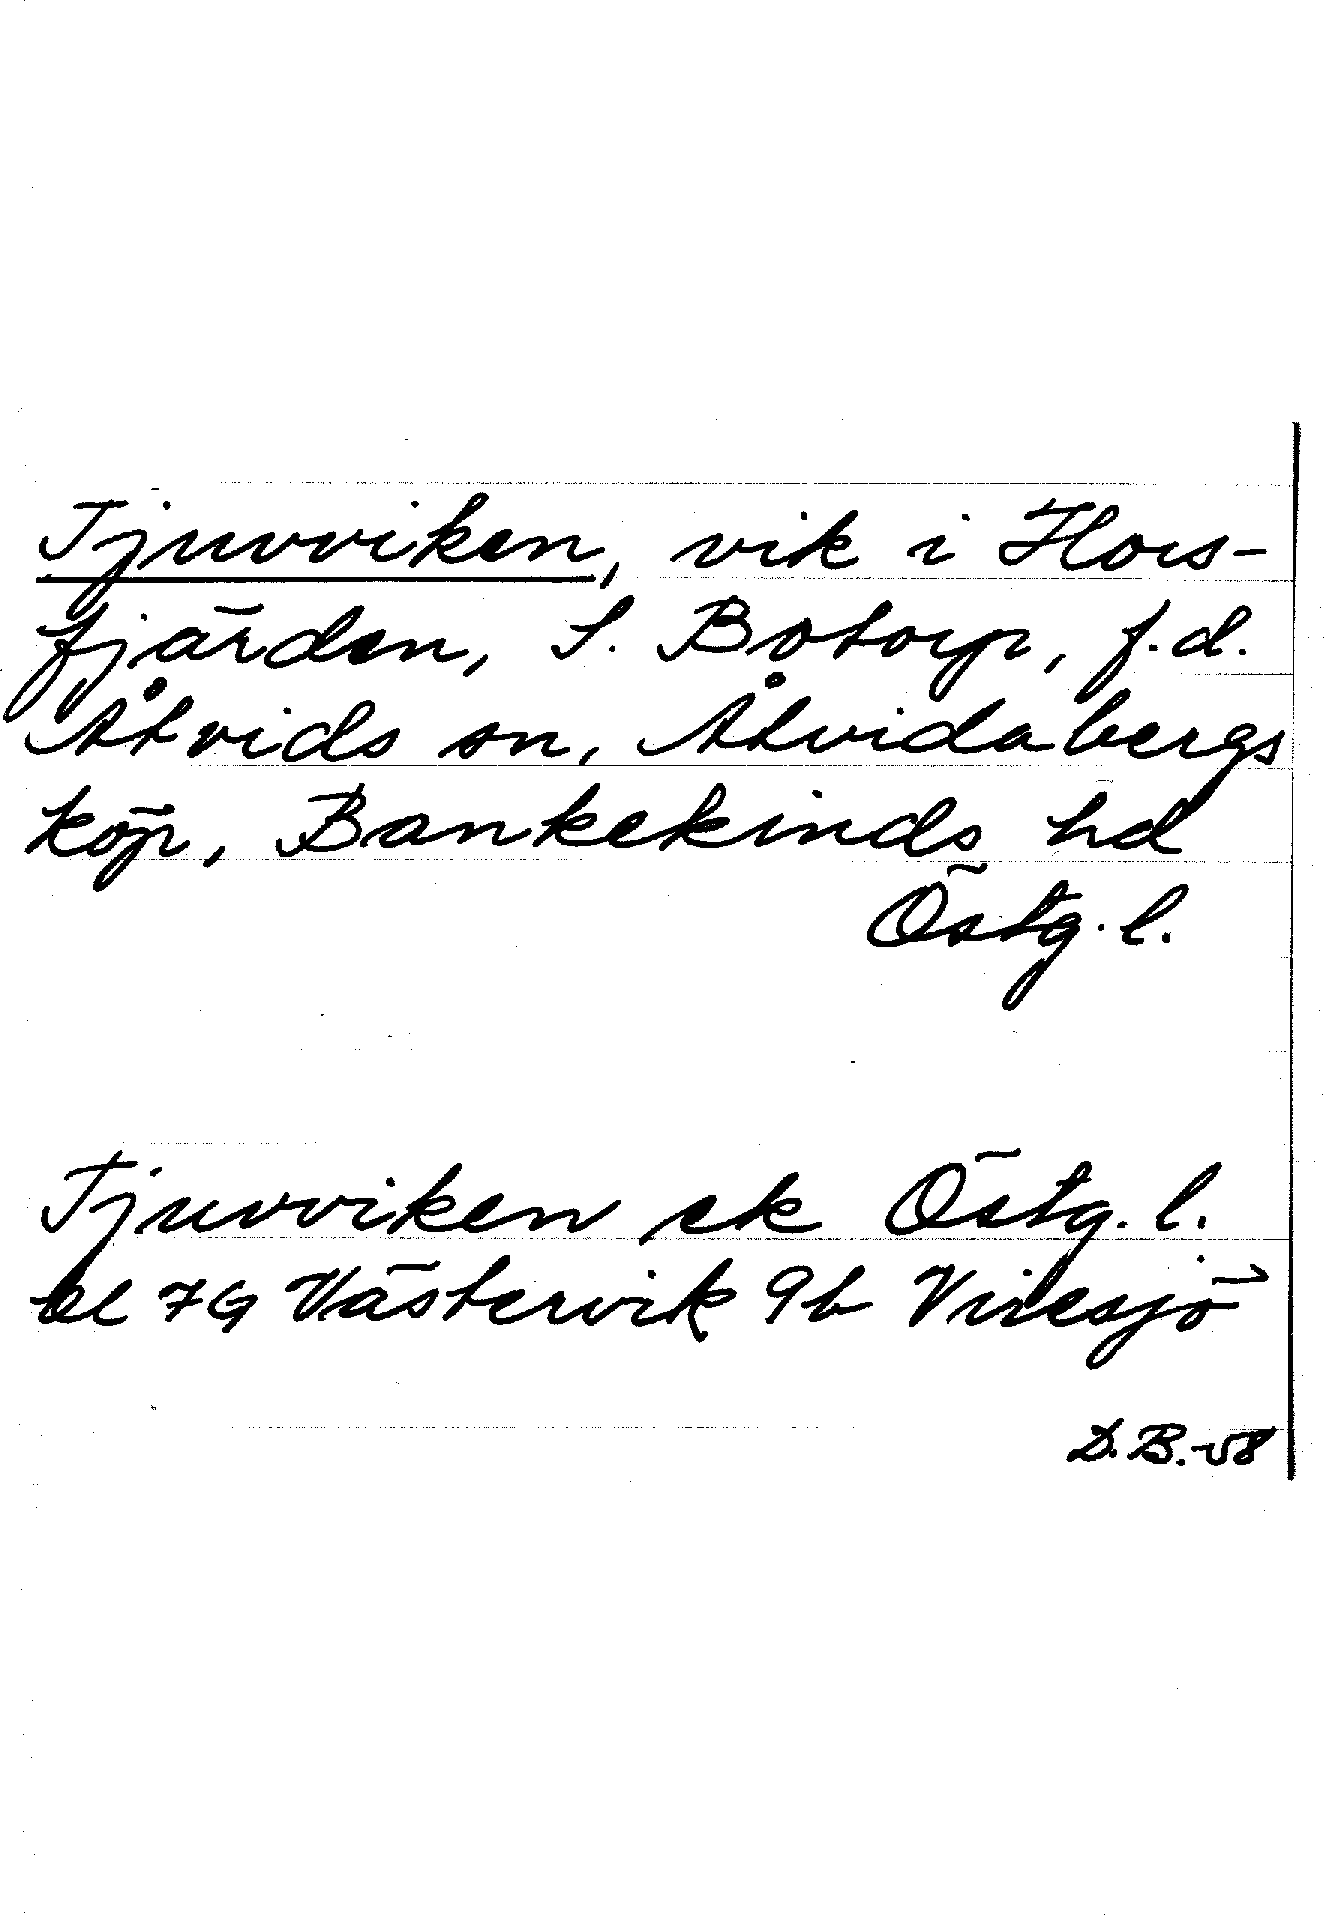 Tjuvviken, vik i Hors-
fjärden, S. Botorp, f.d.
Åtvids sn, Åtvidabergs
köp, Bankekinds hd
Östg. l.
Tjuvviken ek Östg. l.
bl 7G Västervik 9b Vinesjö
D.B.-58